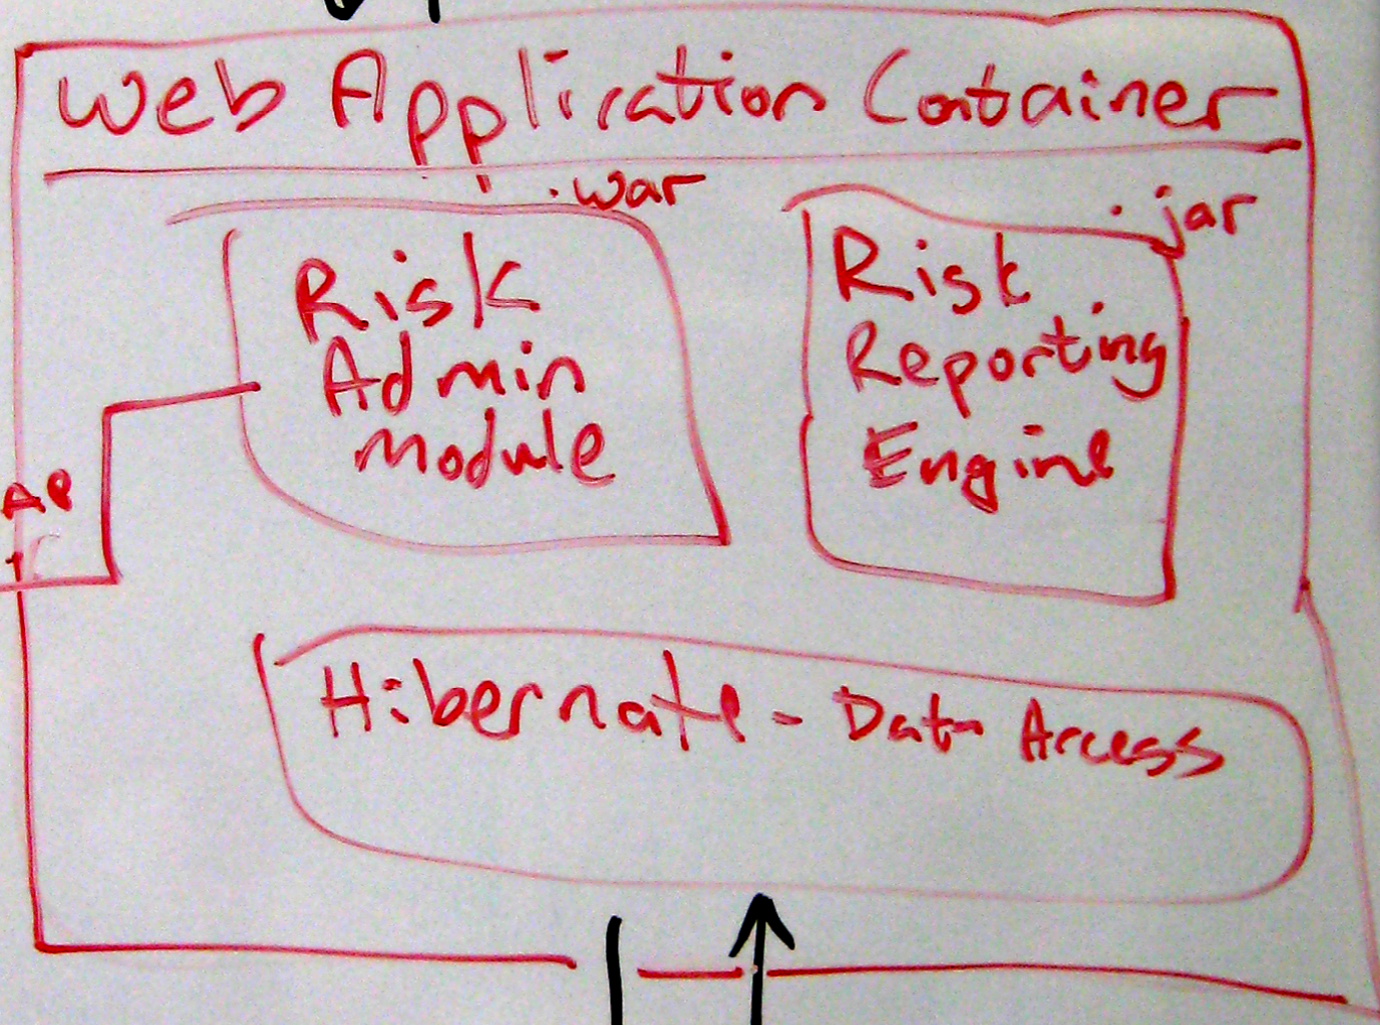 Web Application Container
.war
.jar
Risk
Admin
Module
Risk
Reporting
Engine
Hibernate - Data Access